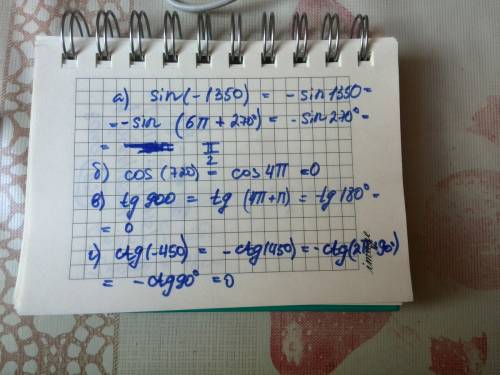 а) sin(-1350) = -sin1350=
= -sin (6π + 270°) = -sin270°=
= π/2
б) cos (720) = cos4π =0
в) tg 900 = tg (4π+π) = tg 180° =
= 0
г) ctg(-450) = -ctg(450) = -ctg(2π+90°)
= -ctg90° =0